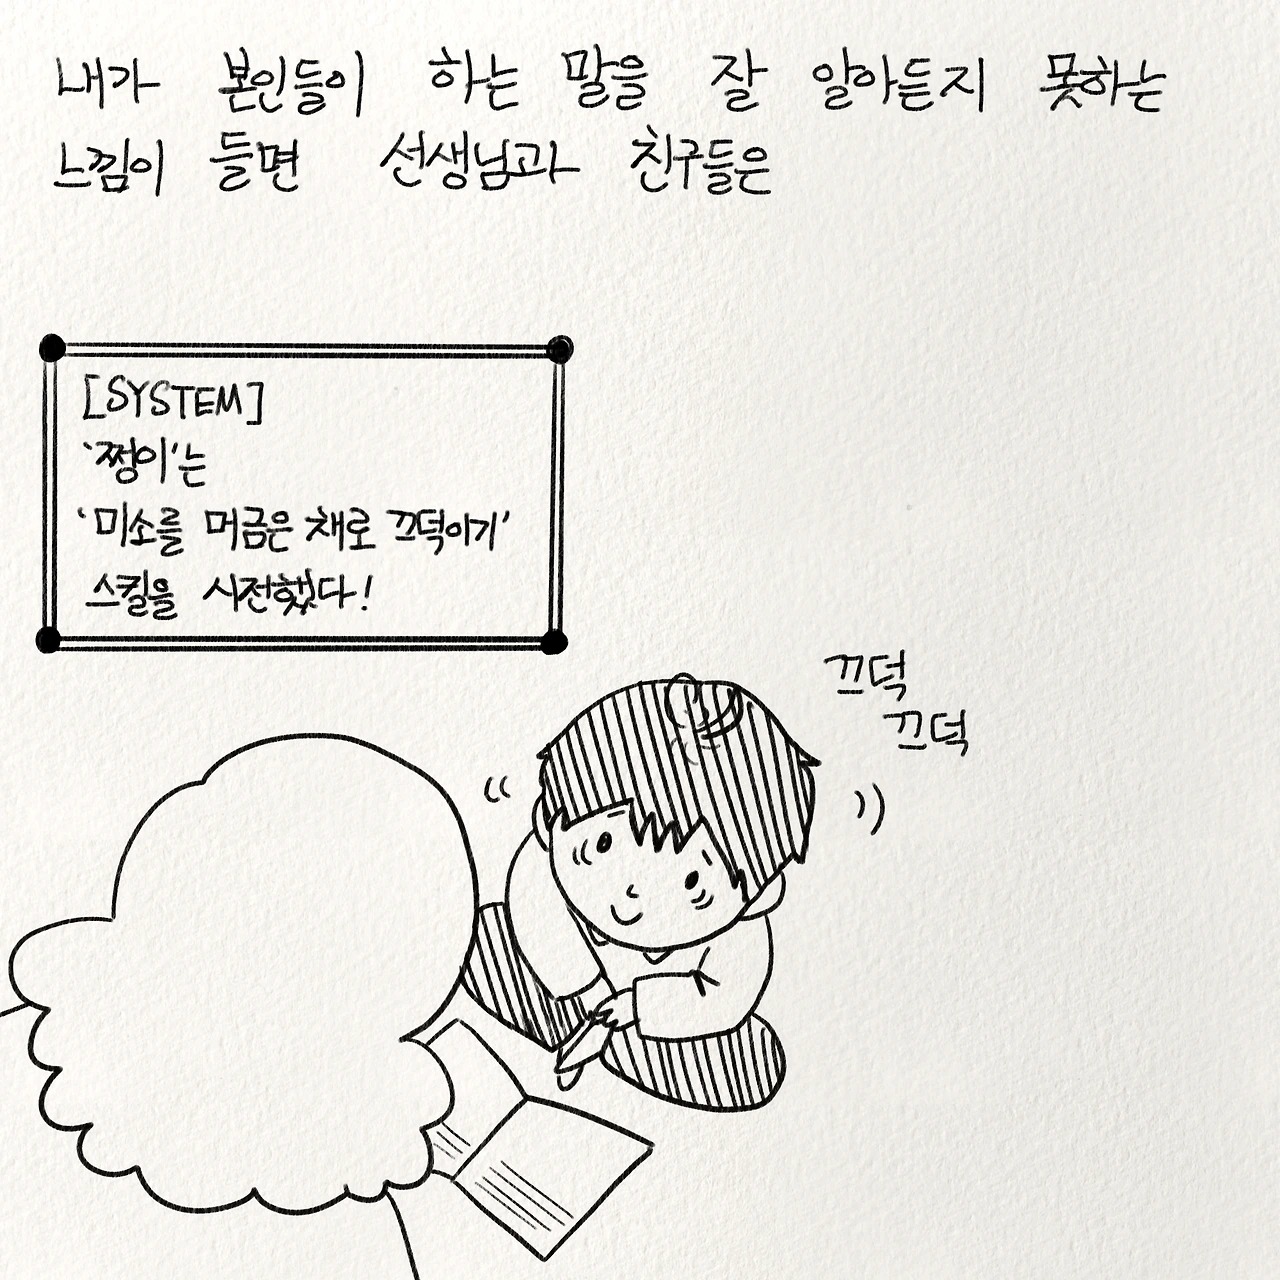 내가 본인들이 하는 말을 잘 알아듣지 못하는
느낌이 들면 선생님과 친구들은
[SYSTEM]
'쩡이'는
'미소를 머금은 채로 끄덕이기'
스킬을 시전했다!
끄덕
끄덕